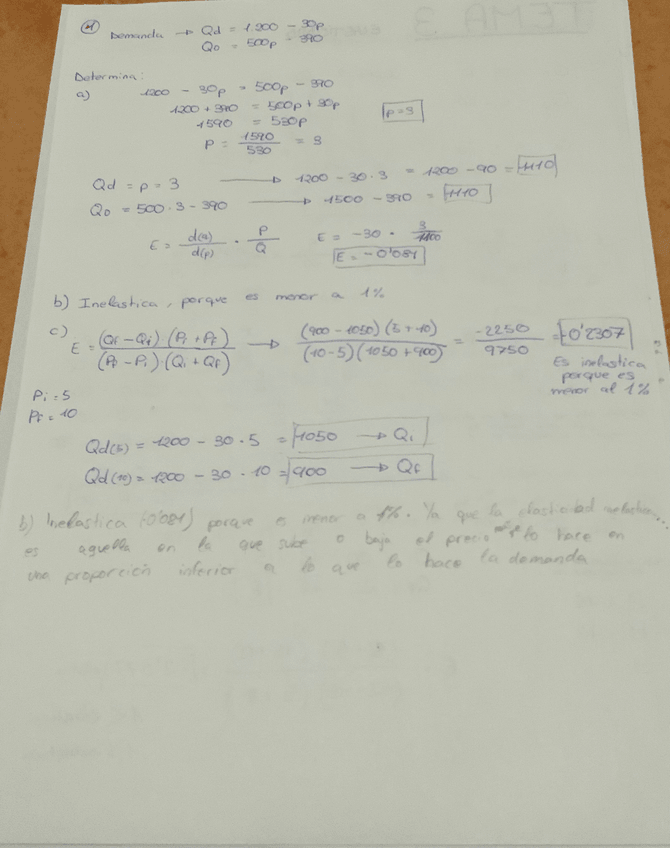 ④ Demanda → Qd = 1.200 - 30p
Qo = 500p - 390
Determina:
a) 1200 - 30p = 500p - 390
1200 + 390 = 500p + 30p
1590 = 530p
p = 3
P = 1590/530 = 3
Qd = p = 3 → 1200 - 30·3 = 1200 - 90 = 1110
Qo = 500·3 - 390 → 1500 - 390 = 1110
E = d(Q)/d(p) · P/Q E = -30 · 3/1100
E = -0'081
b) Inelastica, porque es menor a 1%
c) E = (Qf - Qi)·(Pi + Pf)/(Pf - Pi)·(Qi + Qf) → (900 - 1050)(5 + 10)/(10 - 5)(1050 + 900) = -2250/9750 = -0'2307
Es inelastica
porque es
menor al 1%
Pi = 5
Pf = 10
Qd(5) = 1200 - 30·5 = 1050 → Qi
Qd(10) = 1200 - 30·10 = 900 → Qf
b) Inelastica (0'081) porque es menor a 1%. Ya que la elasticidad inelastica
es aquella en la que sube o baja el precio lo hace en
una proporción inferior a lo que lo hace la demanda